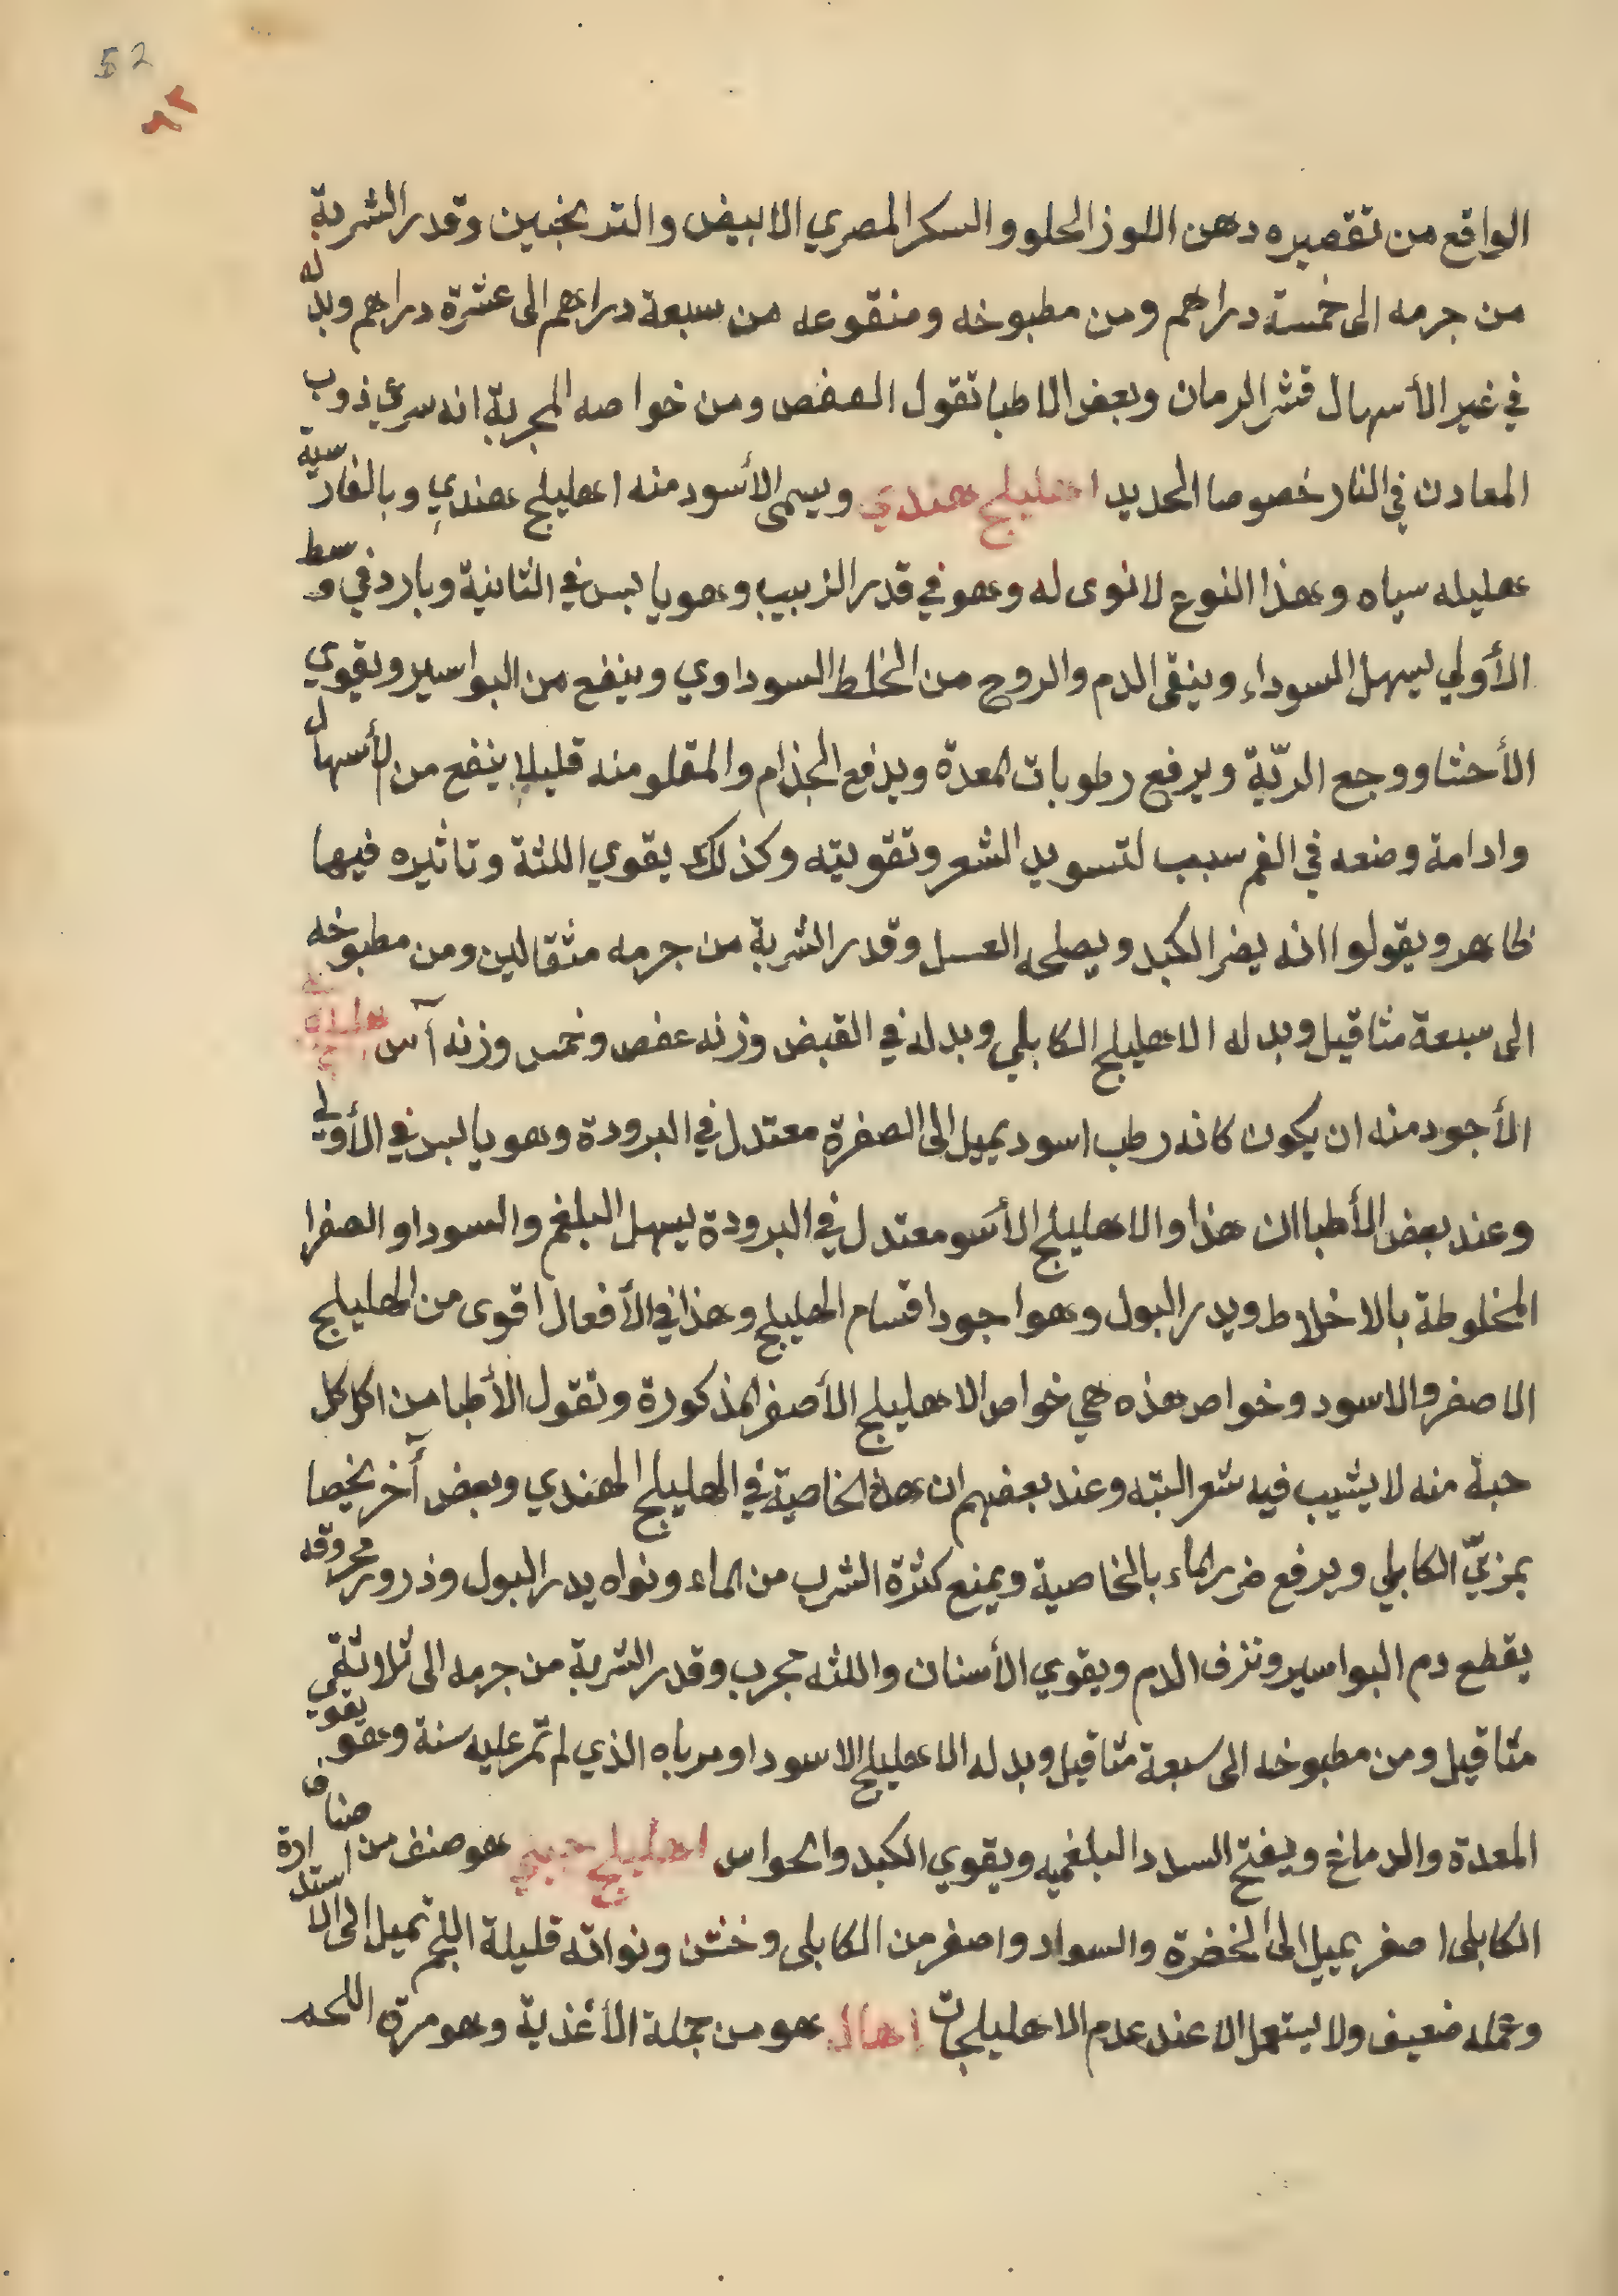 52
٩٢
الواقع من تقصيره دهن اللوز الحلو والسكر المصري الابيض والترنجبين وقدر الشربة
من جرمه الى خمسة دراهم ومن مطبوخه ومنقوعه من سبعة دراهم الى عشرة دراهم وبدله
في غير الأسهال قشر الرمان وبعض الاطبا تقول العفص ومن خواصه المجربة انه سريع ذوب
المعادن في النار خصوصا الحديد اهليلج هندي ويسمى الأسود منه اهليلج هندي وبالفارسية
هليله سياه وهذا النوع لا نوى له وهو في قدر الزبيب وهو يابس في الثانية وبارد في وسط
الأولي يسهل السوداء وينقى الدم والروح من الخلط السوداوي وينفع من البواسير ويقوي
الأحشا ووجع الريّة ويرفع رطوبات المعدة ويدفع الجذام والمقلو منه قليلا ينفع من الأسهال
وادامة وضعه في الفم سبب لتسويد الشعر وتقويته وكذلك يقوي اللثة وتاثيره فيها
ظاهر ويقولوا انه يضر الكبد ويصلحه العسل وقدر الشربة من جرمه مثقالين ومن مطبوخه
الى سبعة مثاقيل وبدله الاهليلج الكابلي وبدله في القبض وزنه عفص وخمس وزنه آس
الأجود منه ان يكون كانه رطب اسود يميل الى الصفرة معتدل في البرودة وهو يابس في الأولي
وعند بعض الأطبا ان هذا والاهليلج الأسو معتدل في البرودة يسهل البلغم والسودا والصفرا
المخلوطة بالاخلاط ويدر البول وهو اجود اقسام الهليلج وهذا في الأفعال اقوى من الهليلج
الاصفر والاسود وخواص هذه هي خواص الاهليلج الأصفر المذكورة وتقول الأطبا من اكل كل
حبة منه لا يشيب فيه شعر البته وعند بعضهم ان هذه الخاصية في الهليلج الهندي وبعض آخر يخصها
بمزبيّ الكابلي ويرفع ضرر الماء بالخاصية ويمنع كثرة الشرب من الماء ونواه يدر البول وذرور محروقه
يقطع دم البواسير ونزف الدم ويقوي الأسنان واللثه مجرب وقدر الشربة من جرمه الى ثلاثة
مثاقيل ومن مطبوخه الى سبعة مثاقيل وبدله الاهليلج الاسود او مرباه الذي لم تمر عليه سنة وهو يقوي
المعدة والدماغ ويفتح السدد البلغميه ويقوي الكبد والحواس اهليلج جيني هو صنف من اصناف
الكابلى اصفر يميل الى الخضرة والسواد واصغر من الكابلى وخشن ونواته قليلة اللحم تميل الى الاستدارة
وعمله ضعيف ولا يستعمل الا عند عدم الاهليلجات اهال هو من جملة الأغذية وهو مرقة اللحم